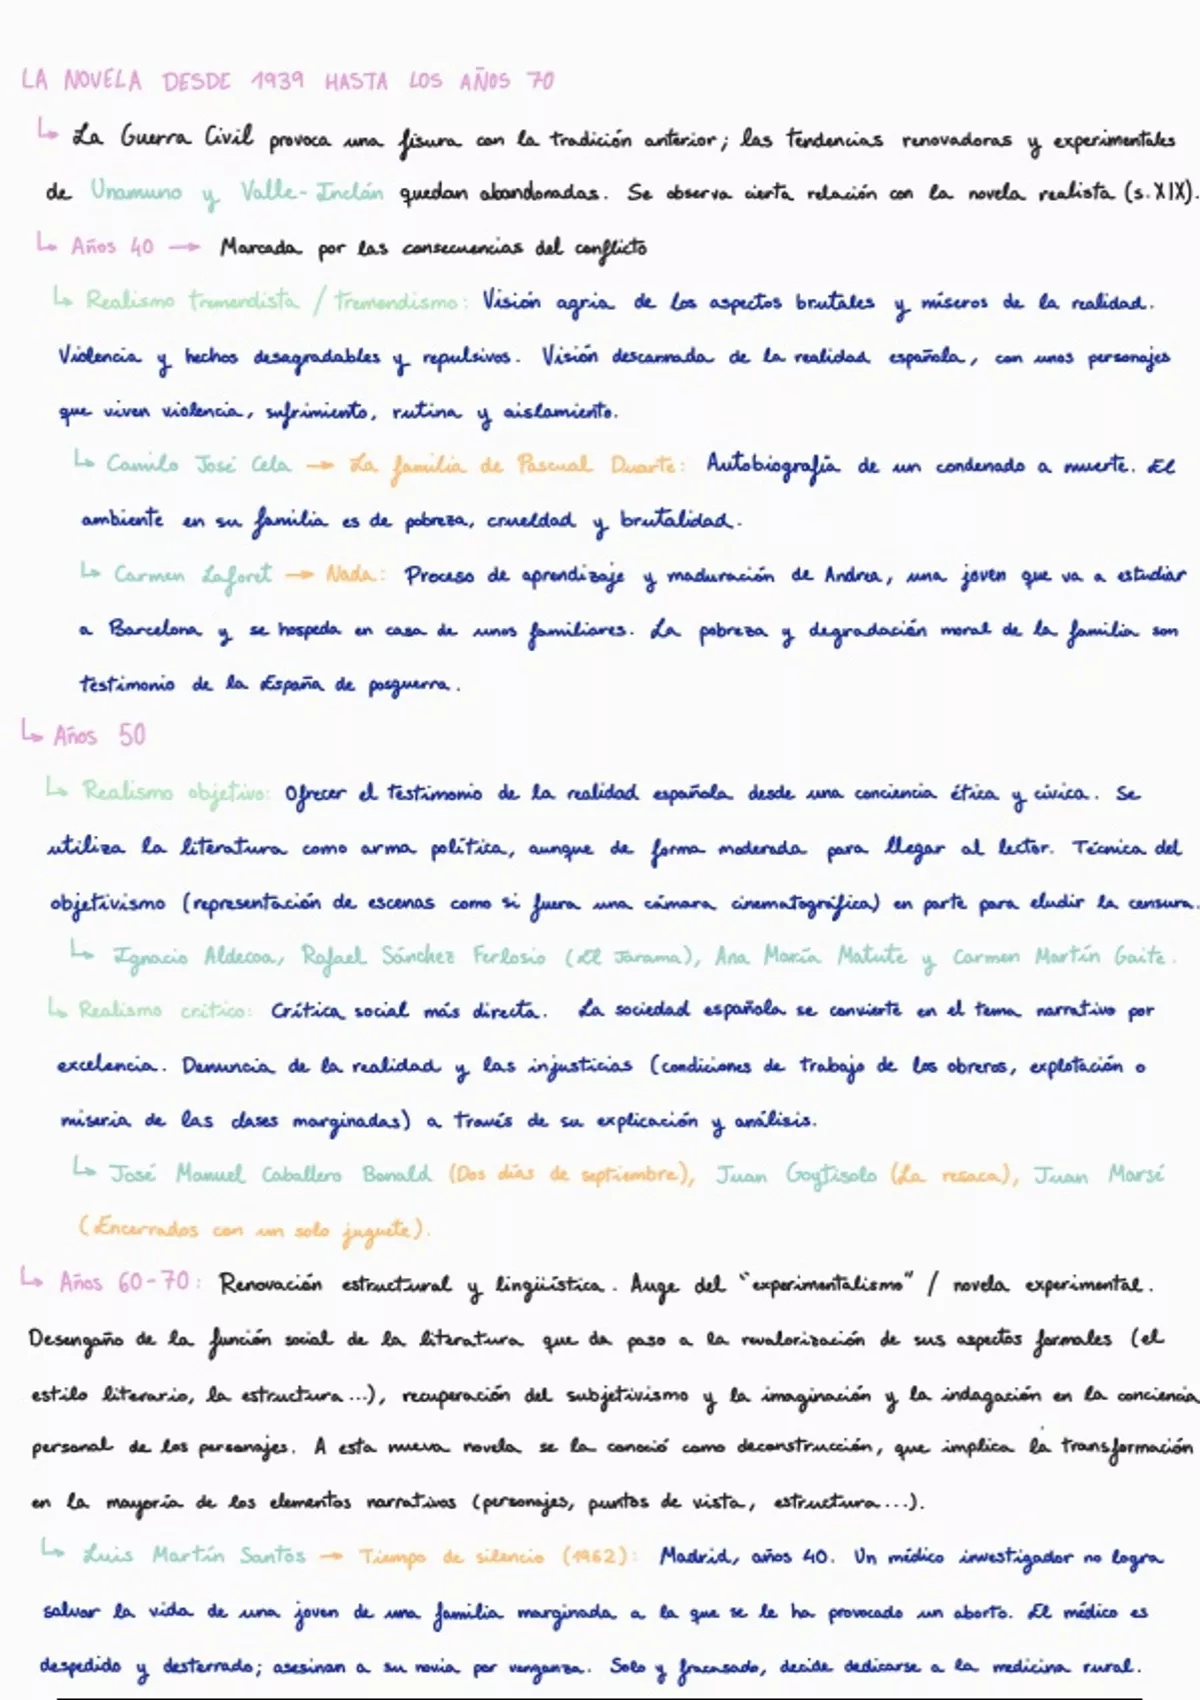 LA NOVELA DESDE 1939 HASTA LOS AÑOS 70
↳ La Guerra Civil provoca una fisura con la tradición anterior; las tendencias renovadoras y experimentales
de Unamuno y Valle-Inclán quedan abandonadas. Se observa cierta relación con la novela realista (s.XIX).
↳ Años 40 → Marcada por las consecuencias del conflicto
↳ Realismo tremendista / tremendismo: Visión agria de los aspectos brutales y míseros de la realidad.
Violencia y hechos desagradables y repulsivos. Visión descarnada de la realidad española, con unos personajes
que viven violencia, sufrimiento, rutina y aislamiento.
↳ Camilo José Cela → La familia de Pascual Duarte: Autobiografía de un condenado a muerte. El
ambiente en su familia es de pobreza, crueldad y brutalidad.
↳ Carmen Laforet → Nada: Proceso de aprendizaje y maduración de Andrea, una joven que va a estudiar
a Barcelona y se hospeda en casa de unos familiares. La pobreza y degradación moral de la familia son
testimonio de la España de posguerra.
↳ Años 50
↳ Realismo objetivo: Ofrecer el testimonio de la realidad española desde una conciencia ética y cívica. Se
utiliza la literatura como arma política, aunque de forma moderada para llegar al lector. Técnica del
objetivismo (representación de escenas como si fuera una cámara cinematográfica) en parte para eludir la censura.
↳ Ignacio Aldecoa, Rafael Sánchez Ferlosio (El Jarama), Ana María Matute y Carmen Martín Gaite.
↳ Realismo crítico: Crítica social más directa. La sociedad española se convierte en el tema narrativo por
excelencia. Denuncia de la realidad y las injusticias (condiciones de trabajo de los obreros, explotación o
miseria de las clases marginadas) a través de su explicación y análisis.
↳ José Manuel Caballero Bonald (Dos días de septiembre), Juan Goytisolo (La resaca), Juan Marsé
(Encerrados con un solo juguete).
↳ Años 60-70: Renovación estructural y lingüística. Auge del "experimentalismo" / novela experimental.
Desengaño de la función social de la literatura que da paso a la revalorización de sus aspectos formales (el
estilo literario, la estructura...), recuperación del subjetivismo y la imaginación y la indagación en la conciencia
personal de los personajes. A esta nueva novela se la conoció como deconstrucción, que implica la transformación
en la mayoría de los elementos narrativos (personajes, puntos de vista, estructura...).
↳ Luis Martín Santos → Tiempo de silencio (1962): Madrid, años 40. Un médico investigador no logra
salvar la vida de una joven de una familia marginada a la que se le ha provocado un aborto. El médico es
despedido y desterrado; asesinan a su novia por venganza. Solo y fracasado, decide dedicarse a la medicina rural.